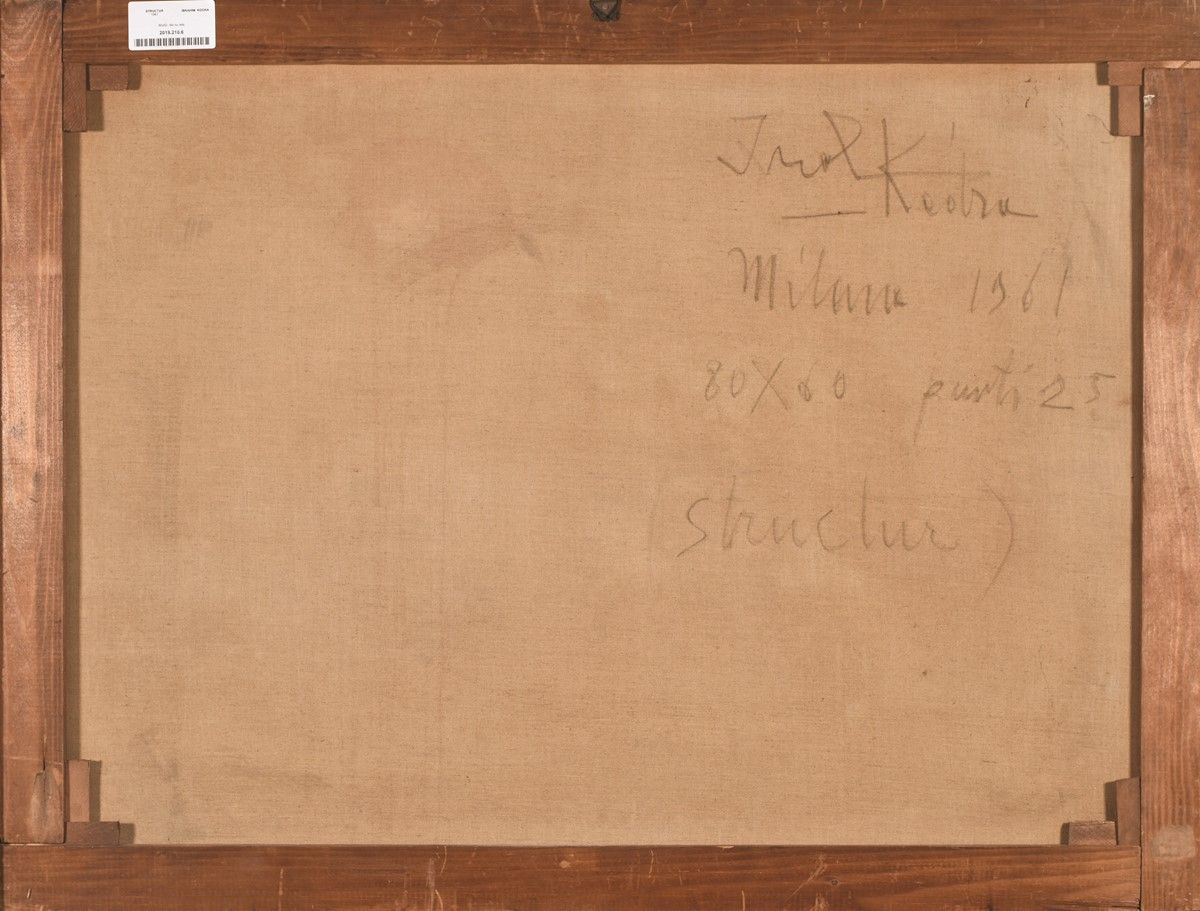 STRUCTUR IBRAHIM KODRA
2015.210.6
Kodra
Milano 1961
80X60 punti 25
(structur)